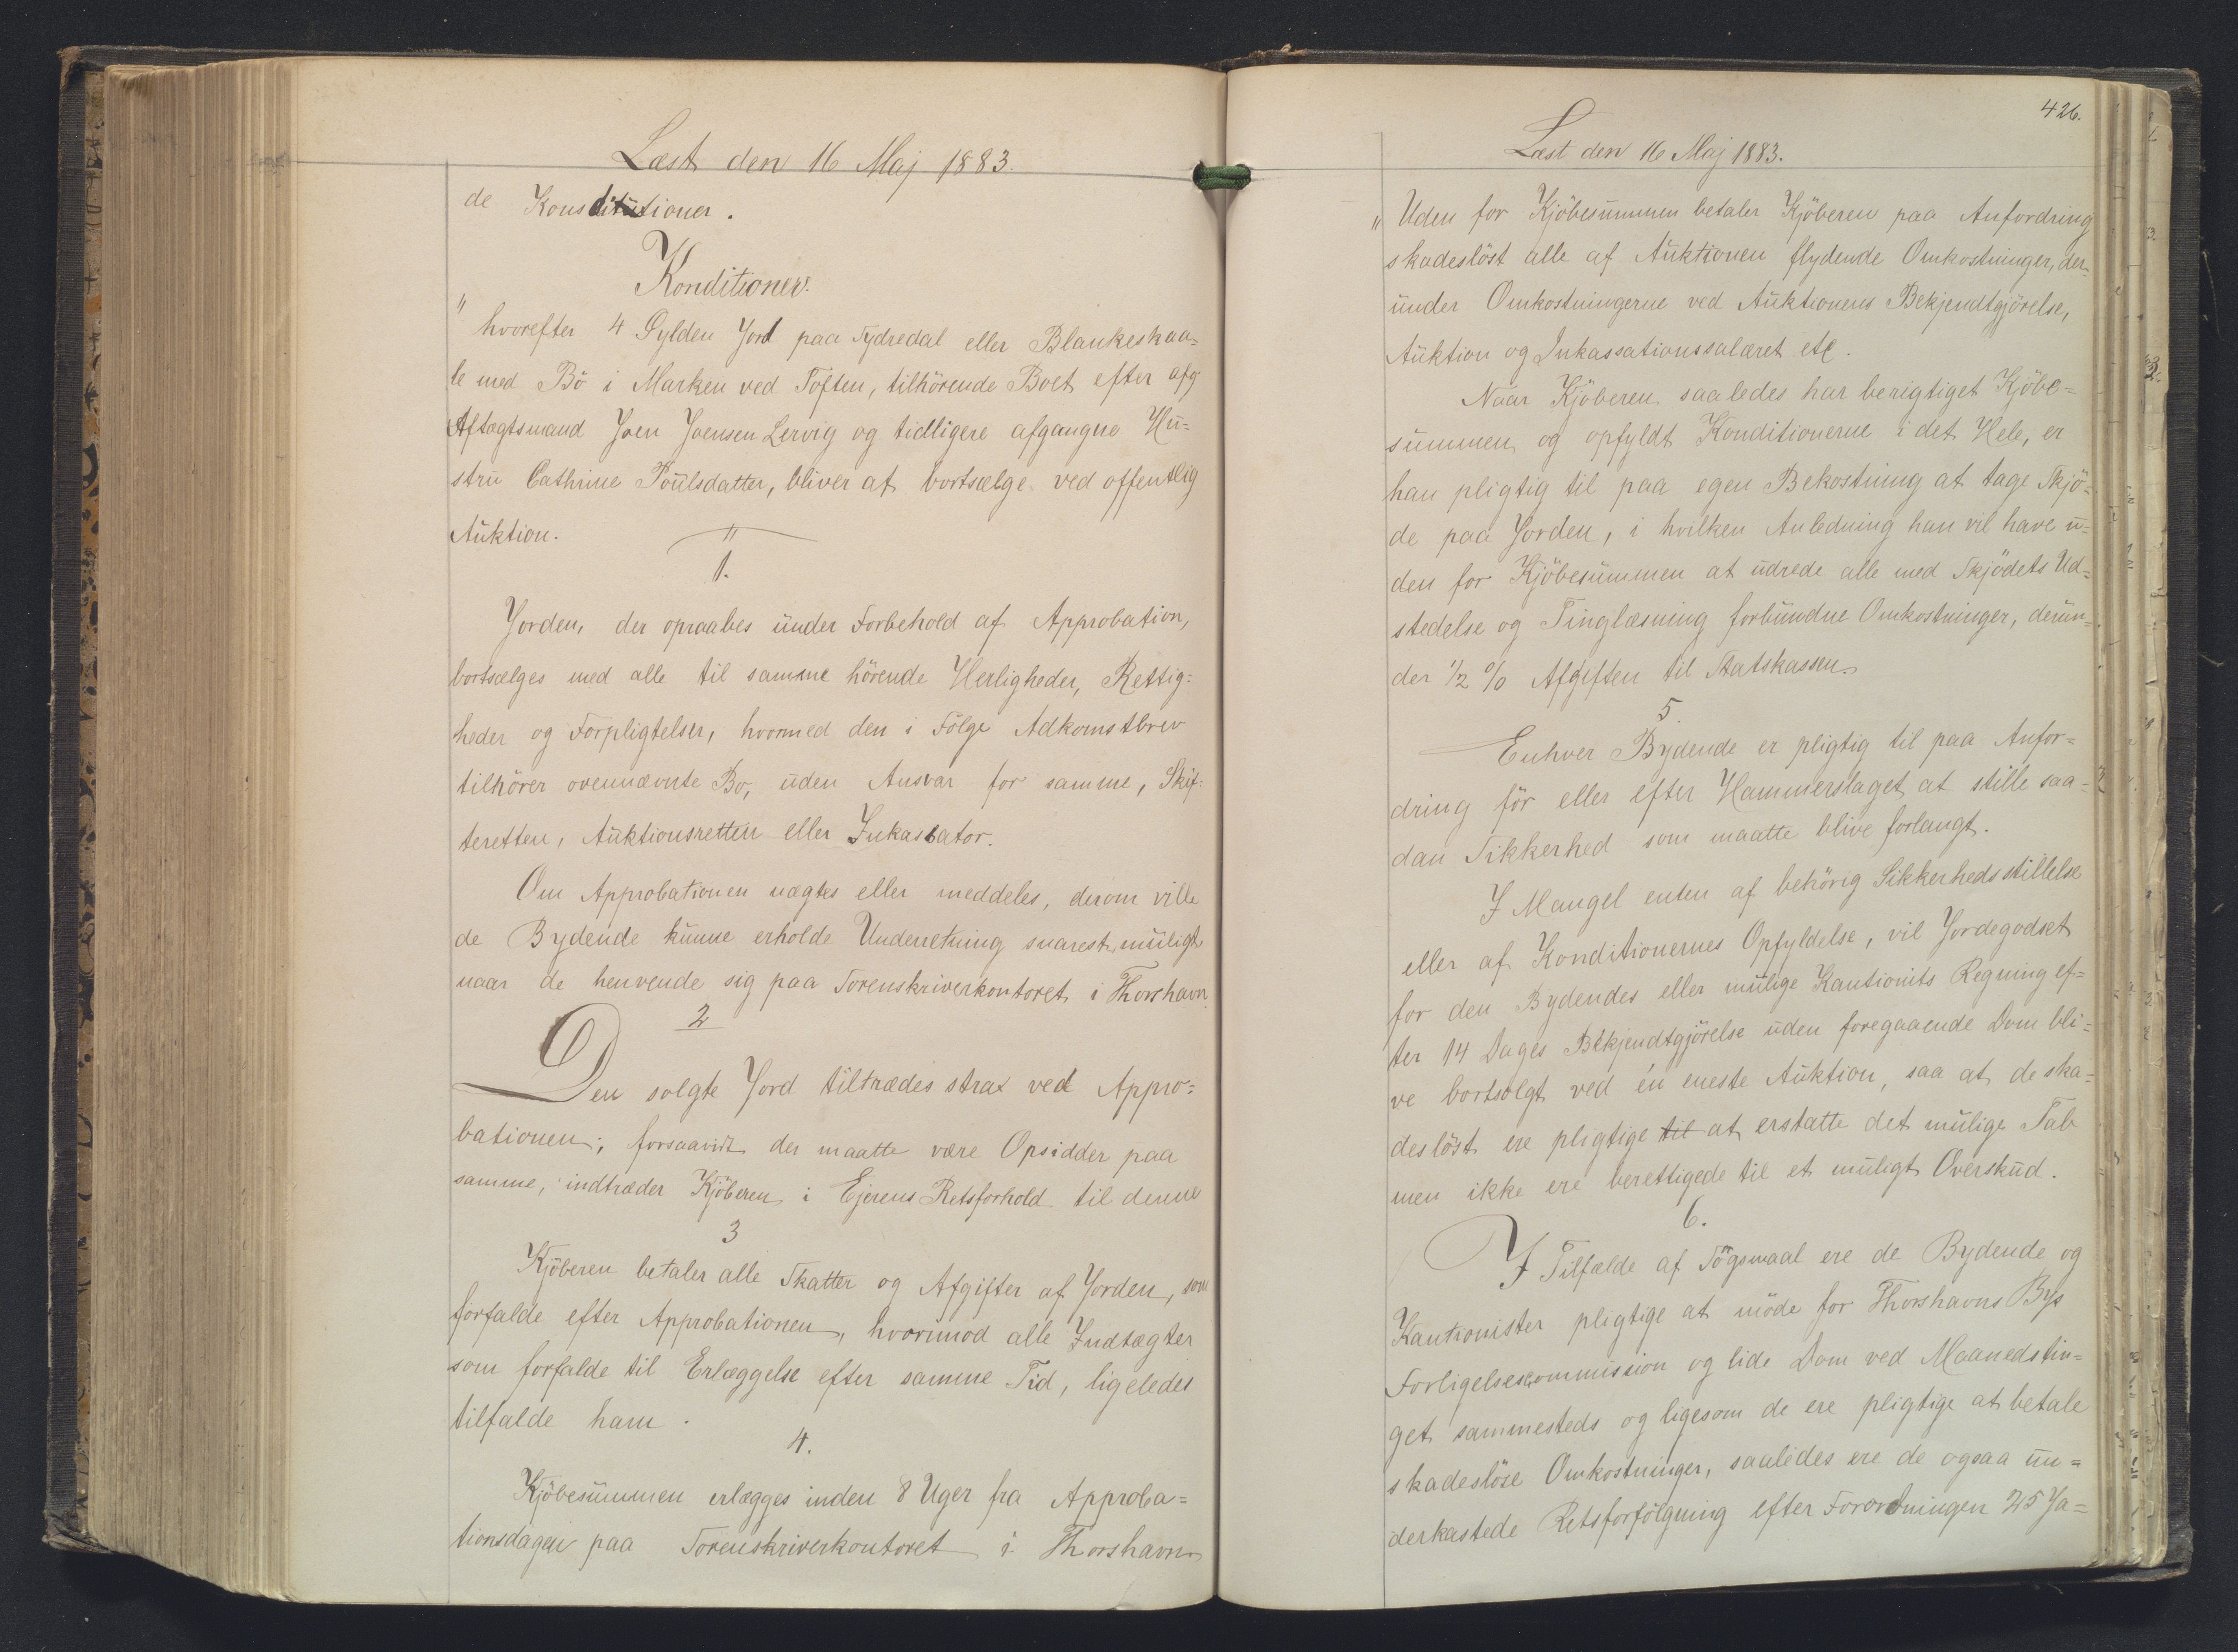 Læst den 16 Maj 1883.
de Konsditutioner.
Konditioner.
" hvorefter 4 Gylden Jord paa Sydredal eller Blankeskaa=
le med Bö i Marken ved Toften, tilhörende Boet efter afg
Aftægtsmand Joen Joensen Lervig og tidligere afgangne Hu=
stru Cathrine Poulsdatter, bliver at bortsælge ved offentlig
Auktion. "
1.
Jorden, der opraabes under Forbehold af Approbation,
bortsælges med alle til samme hörende Herligheder, Rettig=
heder og Forpligtelser, hvormed den i Fölge Adkomstbrev
tilhörer ovennævnte Bo, uden Ansvar for samme, Skif=
teretten, Auktionsretten eller Inkassator.
Om Approbationen nægtes eller meddeles, derom ville
de Bydende kunne erholde Underretning snarest muligt
naar de henvende sig paa Sorenskriverkontoret i Thorshavn
2
Den solgte Jord tiltrædes strax ved Appro=
bationen; forsaavidt der maatte være Opsidder paa
samme, indtræder Kjöberen i Ejerens Retsforhold til denne
3
Kjöberen betaler alle Skatter og Afgifter af Jorden, som
forfalde efter Approbationen, hvorimod alle Indtægter
som forfalde til Erlæggelse efter samme Tid, ligeledes
tilfalde ham.
4.
Kjöbesummen erlægges inden 8 Uger fra Approba=
tionsdagen paa Sorenskriverkontoret i Thorshavn
426.
Læst den 16 Maj 1883.
" Uden for Kjöbesummen betaler Kjöberen paa Anfordring
skadeslöst alle af Auktionen flydende Omkostninger, der=
under Omkostningerne ved Auktionens Bekjendtgjörelse,
Auktion og Inkassationssalæret etc.
Naar Kjöberen saaledes har berigtiget Kjöbe=
summen og opfyldt Konditionerne i det Hele, er
han pligtig til paa egen Bekostning at tage Skjö=
de paa Jorden, i hvilken Anledning han vil have u=
den for Kjöbesummen at udrede alle med Skjödets Ud=
stedelse og Tinglæsning forbundne Omkostninger, derun=
der ½ % Afgiften til Statskassen.
5.
Enhver Bydende er pligtig til paa Anfor=
dring för eller efter Hammerslaget at stille saa=
dan Sikkerhed som maatte blive forlangt.
I Mangel enten af behörig Sikkerhedsstillelse
eller af Konditionernes Opfyldelse, vil Jordegodset
for den Bydendes eller mulige Kautionists Regning ef=
ter 14 Dages Bekjendtgjörelse uden foregaaende Dom bli=
ve bortsolgt ved én eneste Auktion, saa at de ska=
deslöst ere pligtige til at erstatte det mulige Tab
men ikke ere berettigede til et muligt Overskud.
6.
I Tilfælde af Sögsmaal ere de Bydende og
Kautionister pligtige at möde for Thorshavns Bys
Forligelsescommission og lide Dom ved Maanedstin=
get sammesteds og ligesom de ere pligtige at betale
skadeslöse Omkostninger, saaledes ere de ogsaa un=
derkastede Retsforfölgning efter Forordningen 25 Ja=